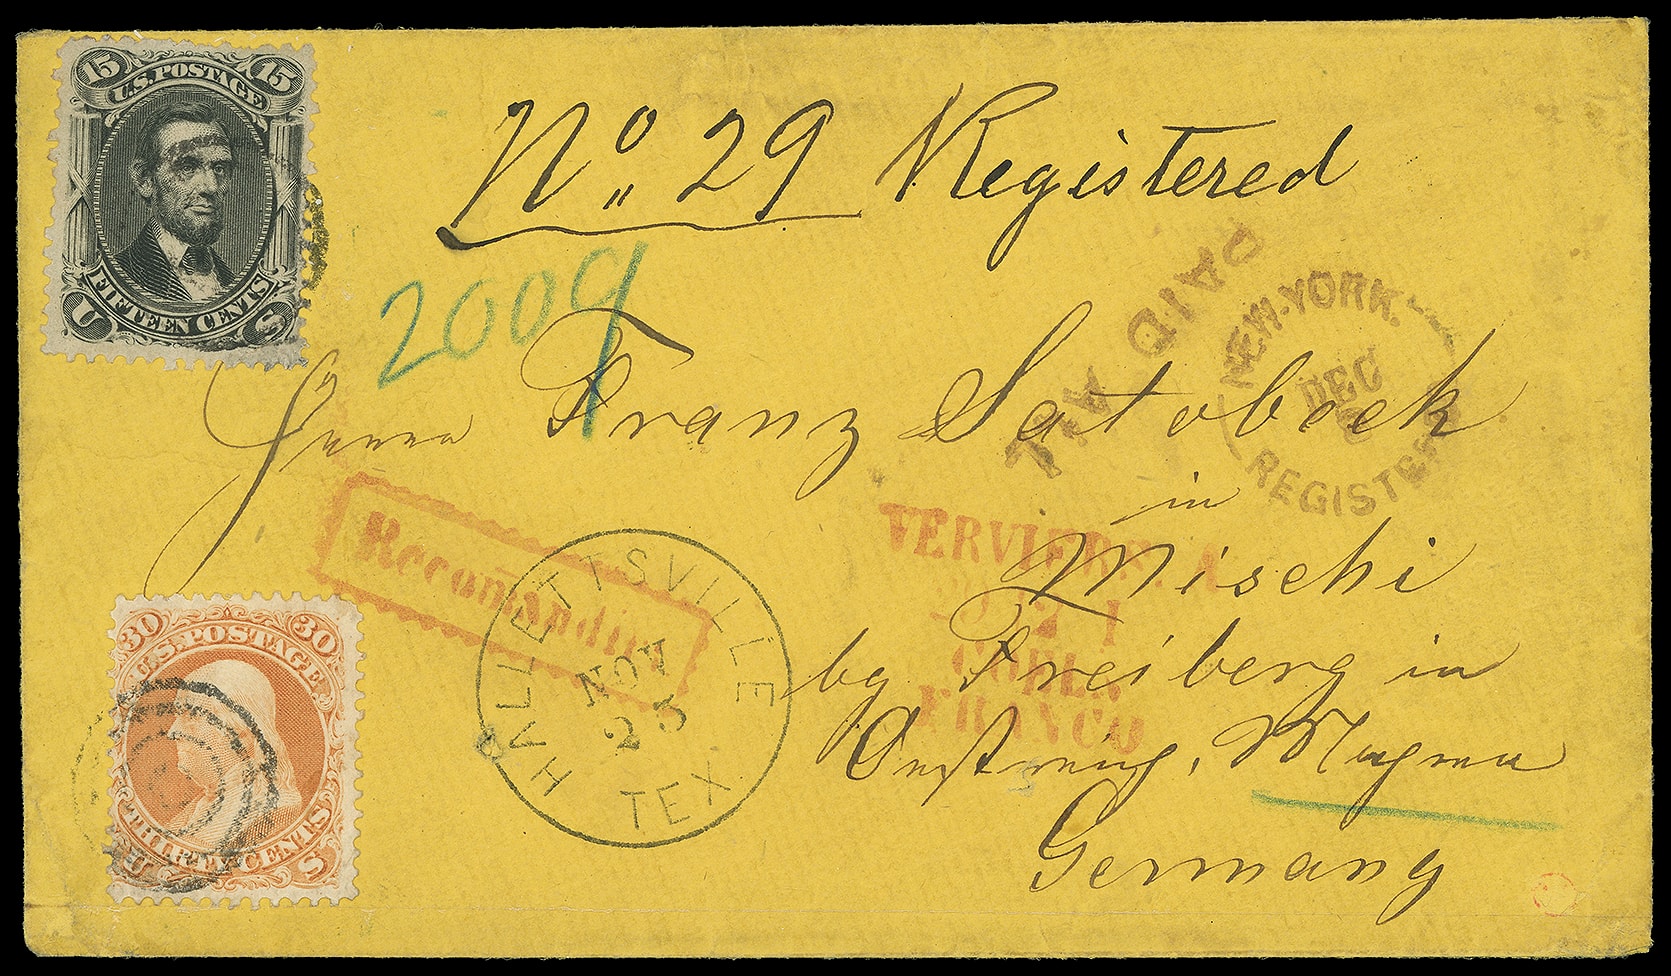 15 U.S. POSTAGE 15
FIFTEEN CENTS
U S
No. 29 Registered
2009
PAID ALL
NEW-YORK.
DEC
REGISTERED
Herrn Franz Satoboek
in
Mischi
by Freiberg in
Oestreig, Magren
Germany
Recomandirt
VERVIERS. A
21
COELN
FRANCO
HALLETTSVILLE
NOV
23
TEX
30 U.S. POSTAGE 30
THIRTY CENTS
U S